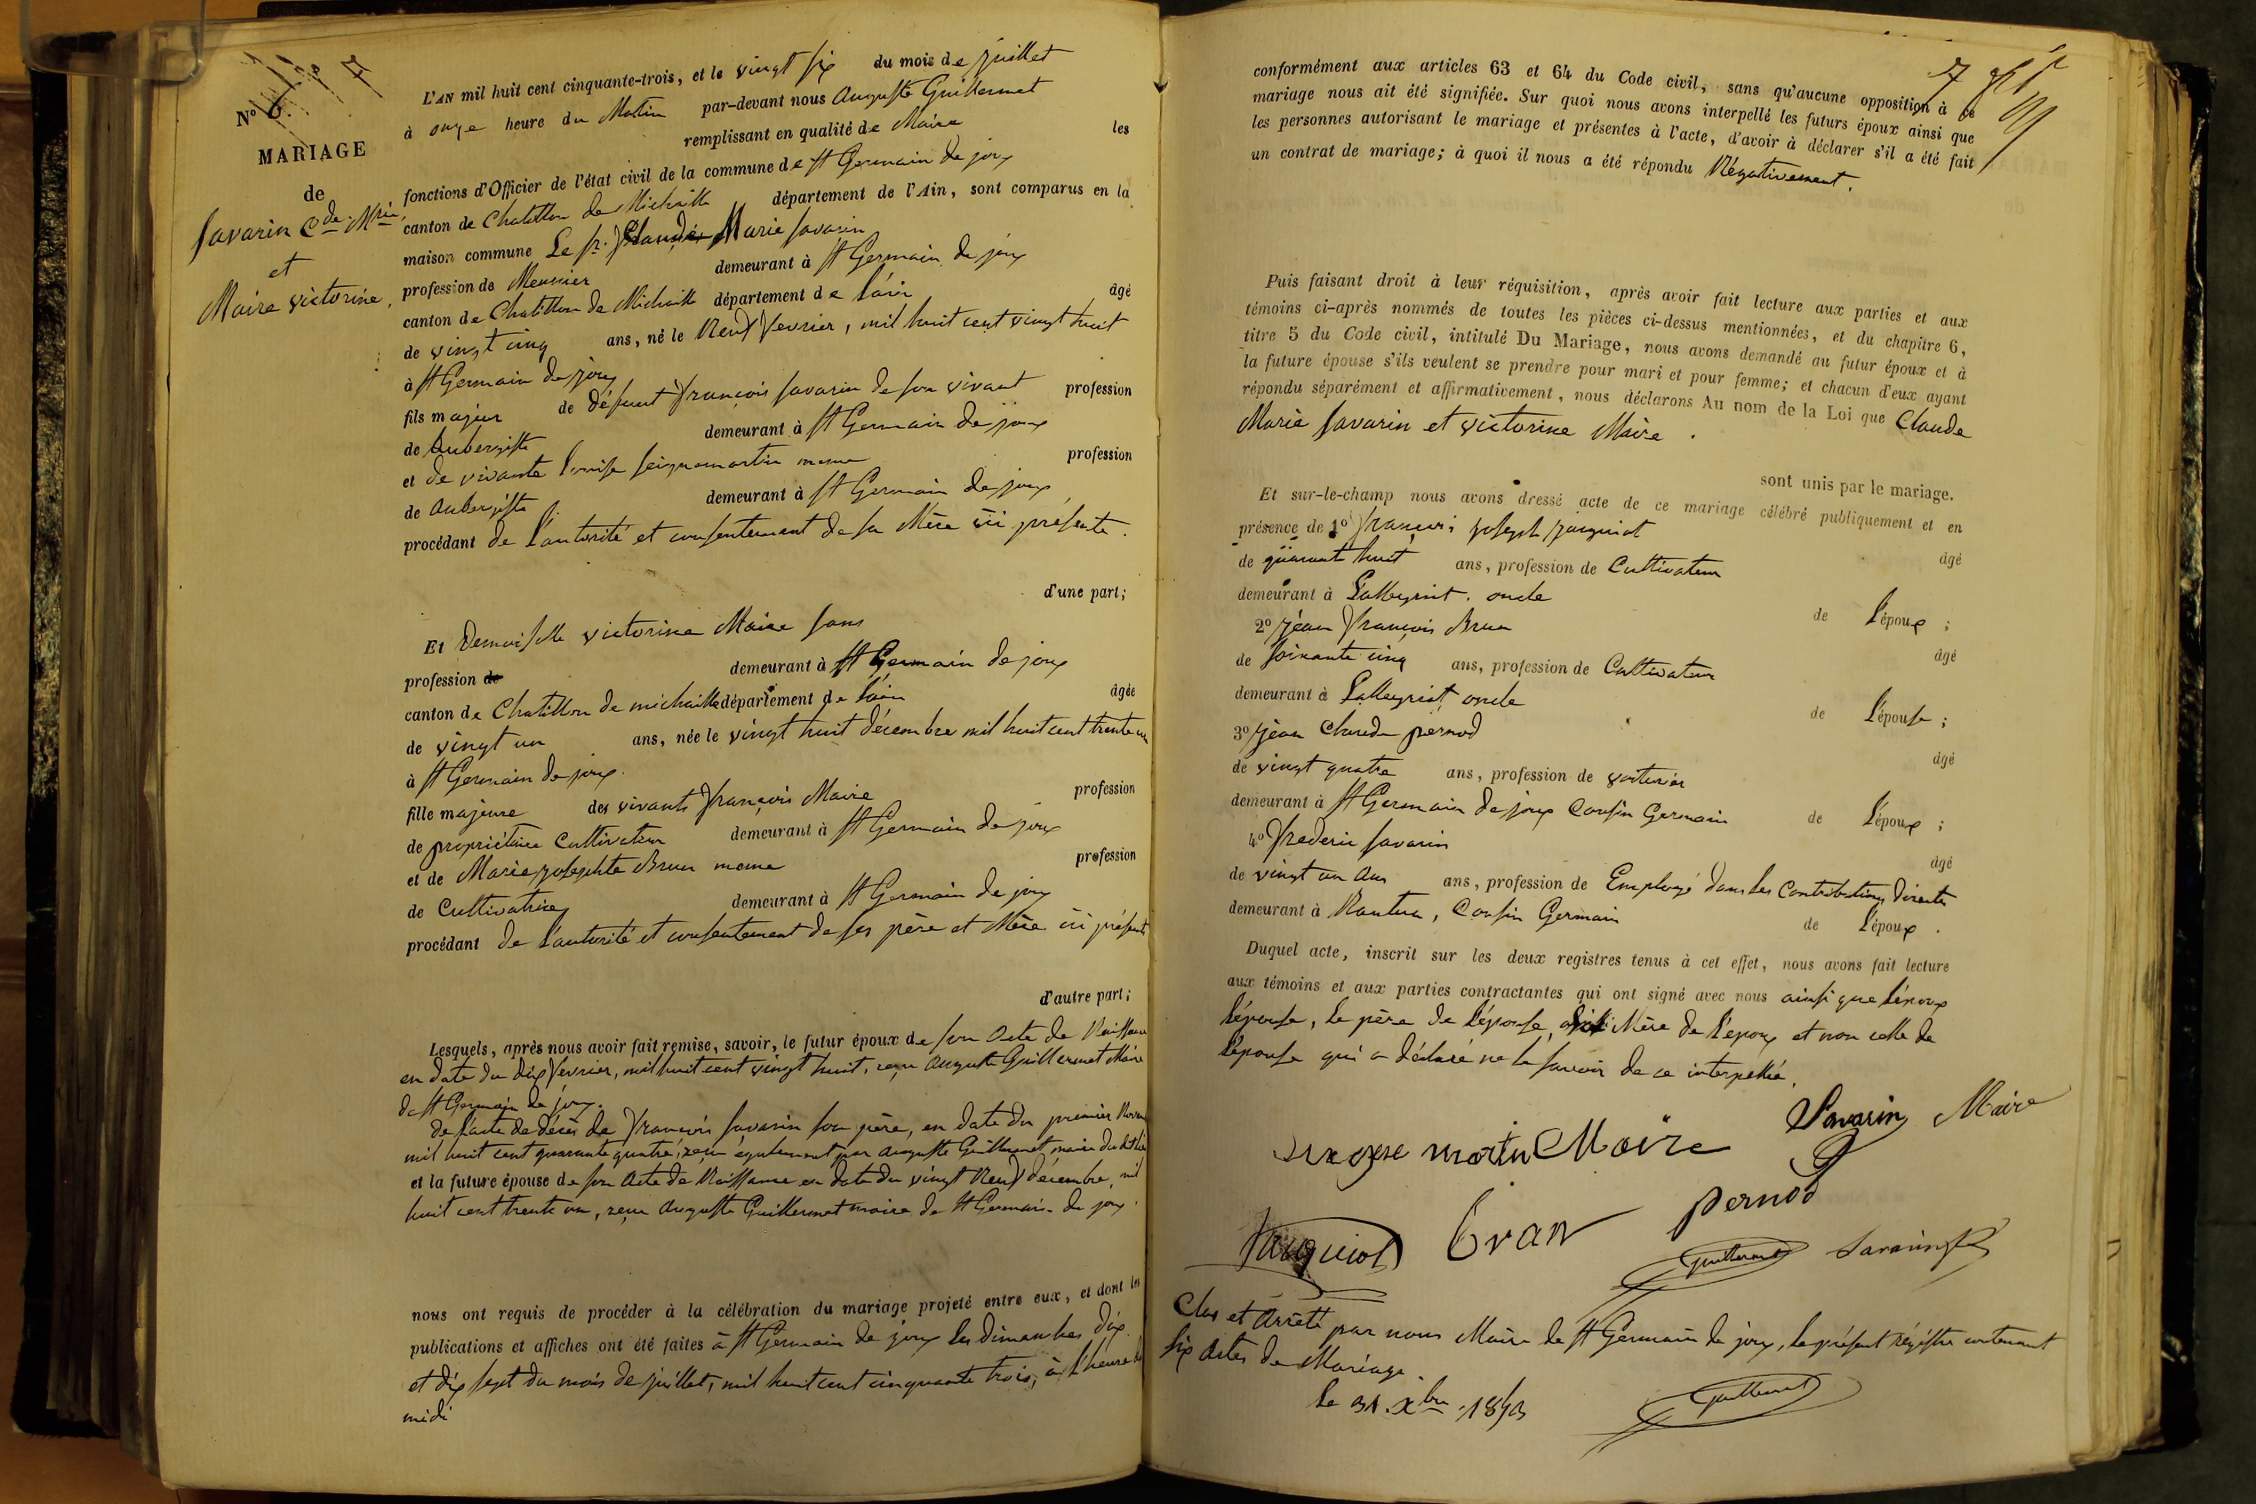 N° 6.
7
MARIAGE
de
Savarin Cde. Mrie
et
Maire victorine
L'AN mil huit cent cinquante-trois, et le vingt six du mois de juillet
à onze heure du Matin par-devant nous Auguste Guillermet
remplissant en qualité de Maire les
fonctions d'Officier de l'état civil de la commune de St Germain de joux
canton de Chatillon de Michaille département de l'Ain, sont comparus en la
maison commune Le sr. Claude Marie Savarin
profession de Meunier demeurant à St Germain de joux
canton de Chatillon de Michaille département de l'ain âgé
de vingt cinq ans, né le Neuf fevrier, mil huit cent vingt huit
à St Germain de joux
fils majeur de défunt françois Savarin de son vivant profession
de Aubergiste demeurant à St Germain de joux
et de vivante Louise Seignemartin meme profession
de Aubergiste demeurant à St Germain de joux
procédant de l'autorité et consentement de sa Mère ici présente.
d'une part;
Et Demoiselle victorine Maire sans
profession de demeurant à St Germain de joux
canton de Chatillon de michaille département de l'ain âgée
de vingt un ans, née le vingt huit décembre mil huit cent trente un
à St Germain de joux.
fille majeure des vivants françois Maire profession
de propriétaire Cultivateur demeurant à St Germain de joux
et de Marie josephte Brun meme profession
de Cultivatrice demeurant à St Germain de joux
procédant de l'autorité et consentement de ses père et Mère ici présents
d'autre part;
Lesquels, après nous avoir fait remise, savoir, le futur époux de son Acte de Naissance
en date du dix fevrier, mil huit cent vingt huit, reçu Auguste Guillermet Maire
de St Germain de joux.
de l'acte de décès de françois Savarin son père, en date du premier
mil huit cent quarante quatre, reçu également par Auguste Guillermet maire dudit lieu
et la future épouse de son Acte de Naissance en date du vingt Neuf décembre, mil
huit cent trente un, reçu Auguste Guillermet maire de St Germain de joux.
nous ont requis de procéder à la célébration du mariage projeté entre eux, et dont les
publications et affiches ont été faites à St Germain de joux les dimanches dix
et dix sept du mois de juillet, mil huit cent cinquante trois, à l'heure de
midi
7
conformément aux articles 63 et 64 du Code civil, sans qu'aucune opposition à ce
mariage nous ait été signifiée. Sur quoi nous avons interpellé les futurs époux ainsi que
les personnes autorisant le mariage et présentes à l'acte, d'avoir à déclarer s'il a été fait
un contrat de mariage; à quoi il nous a été répondu Négativement.
Puis faisant droit à leur réquisition, après avoir fait lecture aux parties et aux
témoins ci-après nommés de toutes les pièces ci-dessus mentionnées, et du chapitre 6,
titre 5 du Code civil, intitulé Du Mariage, nous avons demandé au futur époux et à
la future épouse s'ils veulent se prendre pour mari et pour femme; et chacun d'eux ayant
répondu séparément et affirmativement, nous déclarons Au nom de la Loi que Claude
Marie Savarin et victorine Maire.
sont unis par le mariage.
Et sur-le-champ nous avons dressé acte de ce mariage célébré publiquement et en
présence de 1° françois joseph jacquiot âgé
de quarante huit ans, profession de Cultivateur
demeurant à Lalleyriat. oncle de l'époux;
2° jean françois Brun âgé
de soixante cinq ans, profession de Cultivateur
demeurant à Lalleyriat oncle de l'épouse;
3° jean Claude pernod âgé
de vingt quatre ans, profession de voiturier
demeurant à St Germain de joux Cousin Germain de l'époux;
4° frederic Savarin âgé
de vingt un ans ans, profession de Employé dans les Contributions directes
demeurant à Nantua, Cousin Germain de l'époux.
Duquel acte, inscrit sur les deux registres tenus à cet effet, nous avons fait lecture
aux témoins et aux parties contractantes qui ont signé avec nous ainsi que l'époux
l'épouse, le père de l'épouse, Mère de l'epoux et non celle de
l'épouse qui a déclaré ne le savoir de ce interpellée.
Savarin Maire
martin Maire
pernod
Jacquiot Bran
Guillermet Savarin
Clos et Arrêté par nous Maire de St Germain de joux, le présent régistre contenant
six Actes de Mariage.
Le 31. Xbre 1853
Guillermet